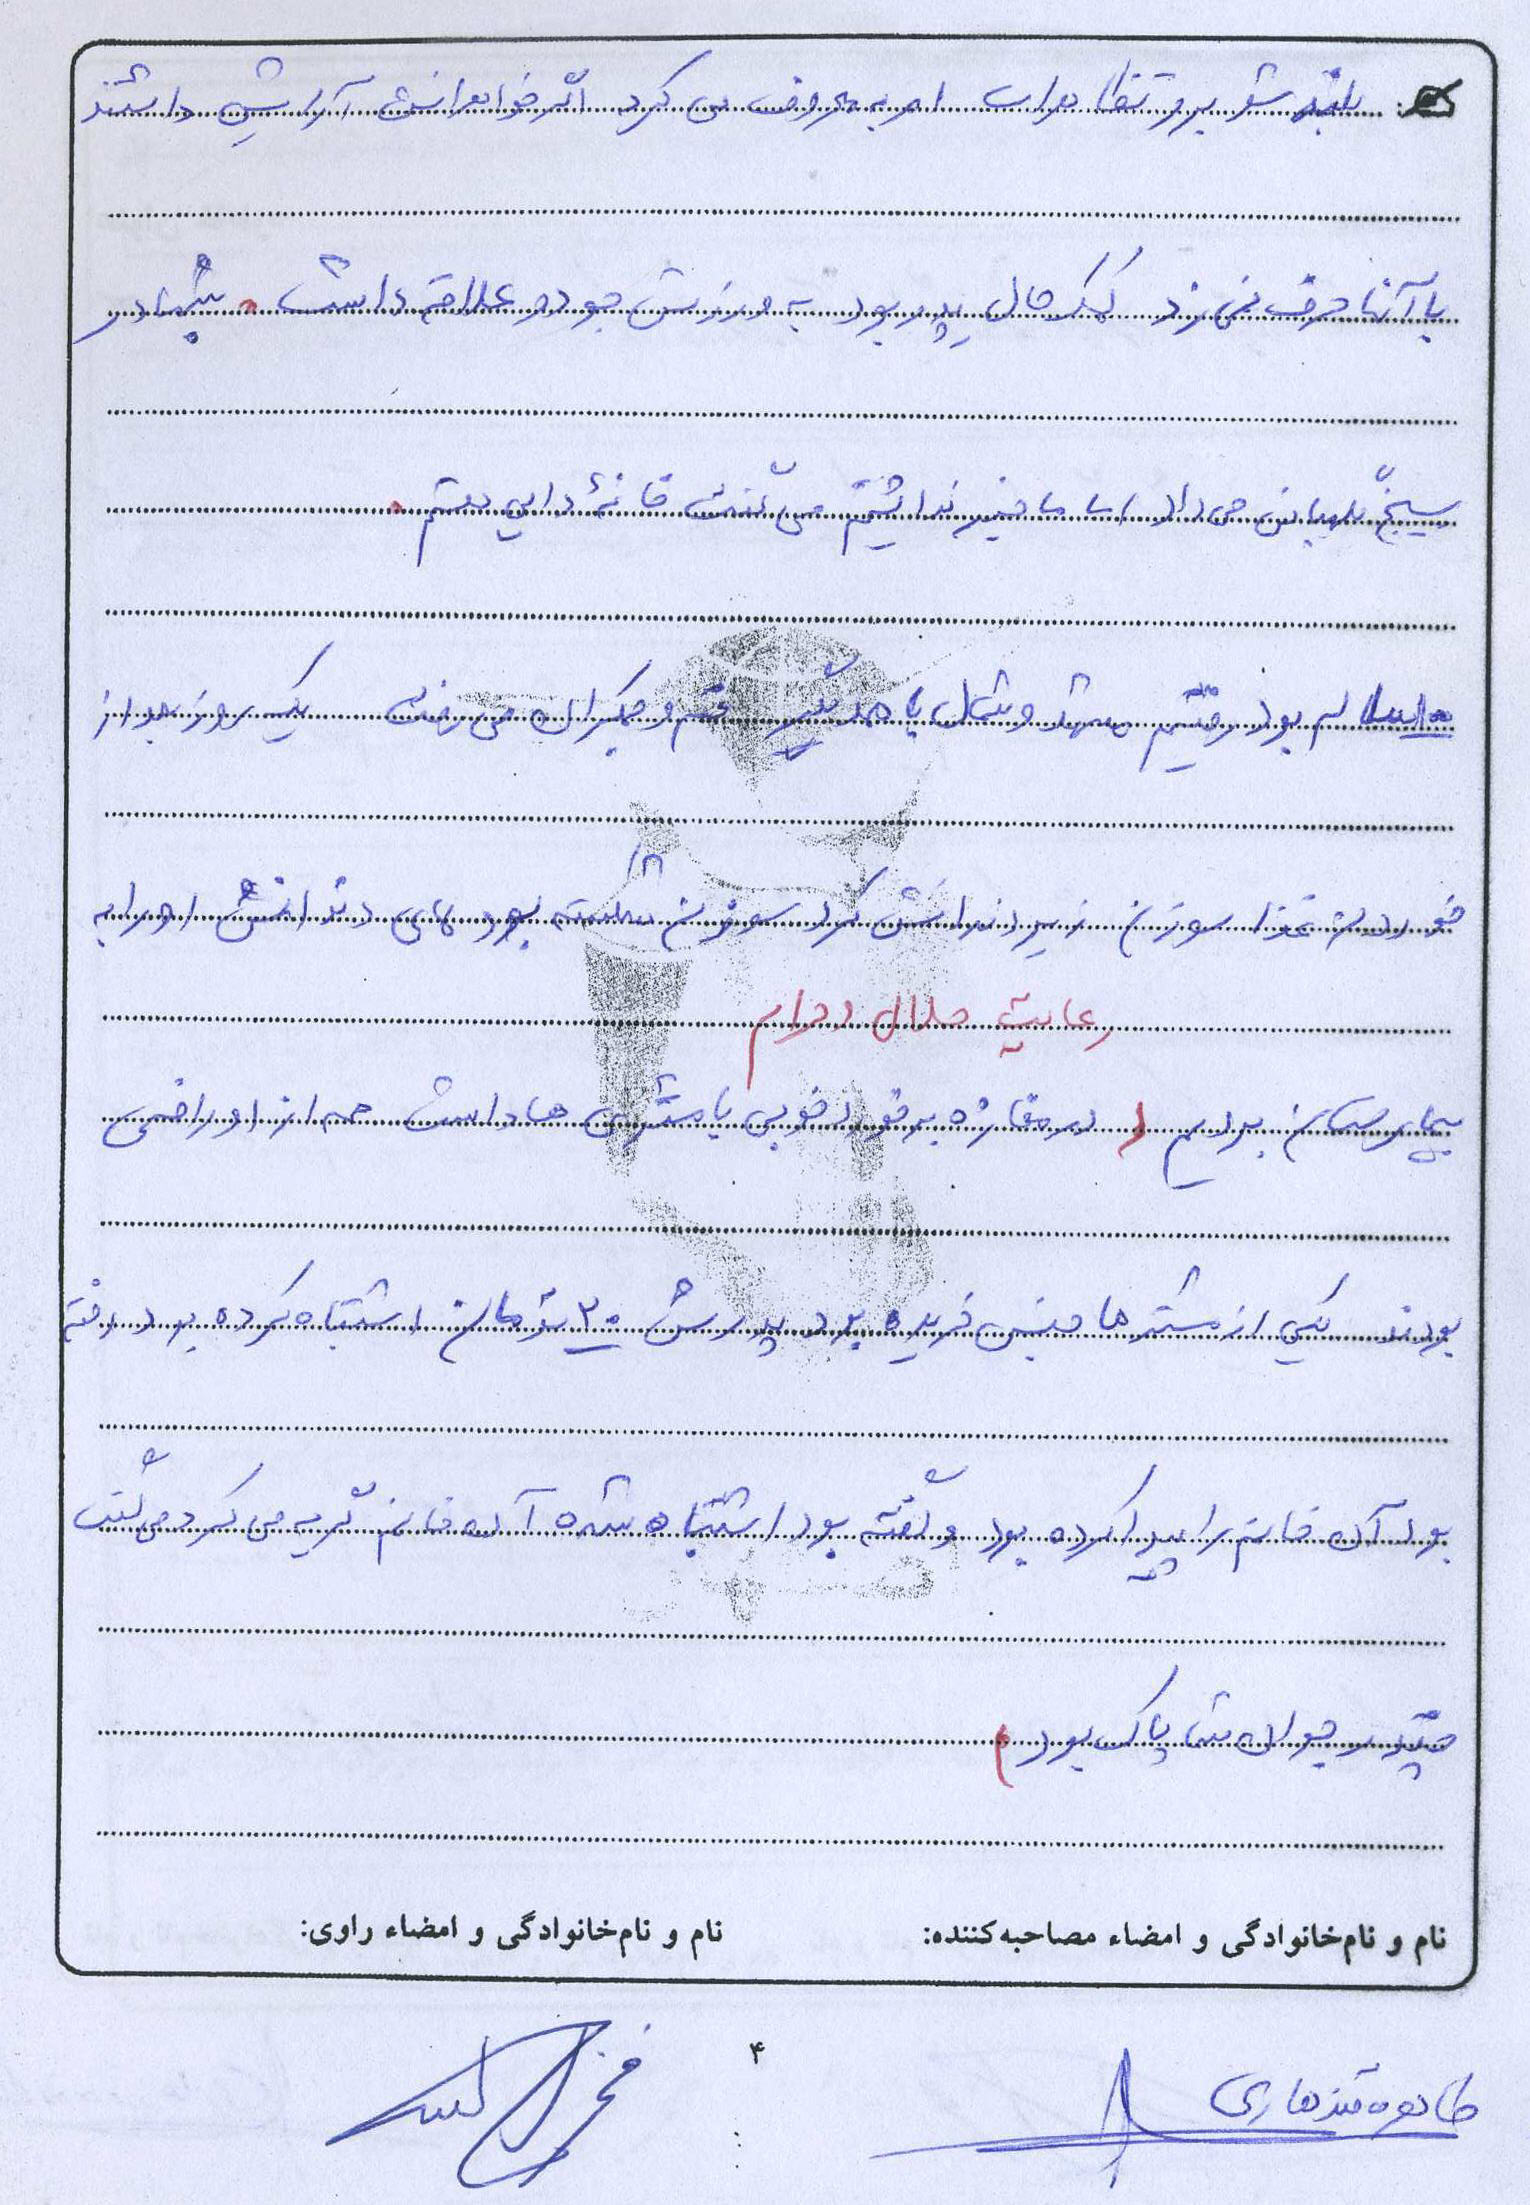 بلند شو برو تظاهرات امر به معروف می کرد اگر خواهرانش آرایش داشتند
با آنها حرف نمی زد کمک حال پدر بود به ورزش جودو علاقه داشت . شبها در
بسیج نگهبانی می داد اما ما خبر نداشتیم می گفت خانهٔ دایی هستم .
سالم بود رفتیم مشهد و شمال با همدیگر قم و جمکران می رفت یک روز بعد از
خوردن غذا سوزن زیر دندانش کرد سوزن شکسته بود لای دندانش او را به
رعایت حلال و حرام
بیمارستان بردیم ( در مغازه برخورد خوبی با مشتری ها داشت همه از او راضی
بودند یکی از مشترها جنس خریده بود پدرش ۲۰ تومان اشتباه کرده بود رفته
بود آن خانم را پیدا کرده بود و گفته بود اشتباه شده آن خانم گریه می کرد می گفت
چقدر جوان شما پاک بود )
نام و نام‌خانوادگی و امضاء مصاحبه‌کننده: نام و نام‌خانوادگی و امضاء راوی:
طاهره قندهاری
۴